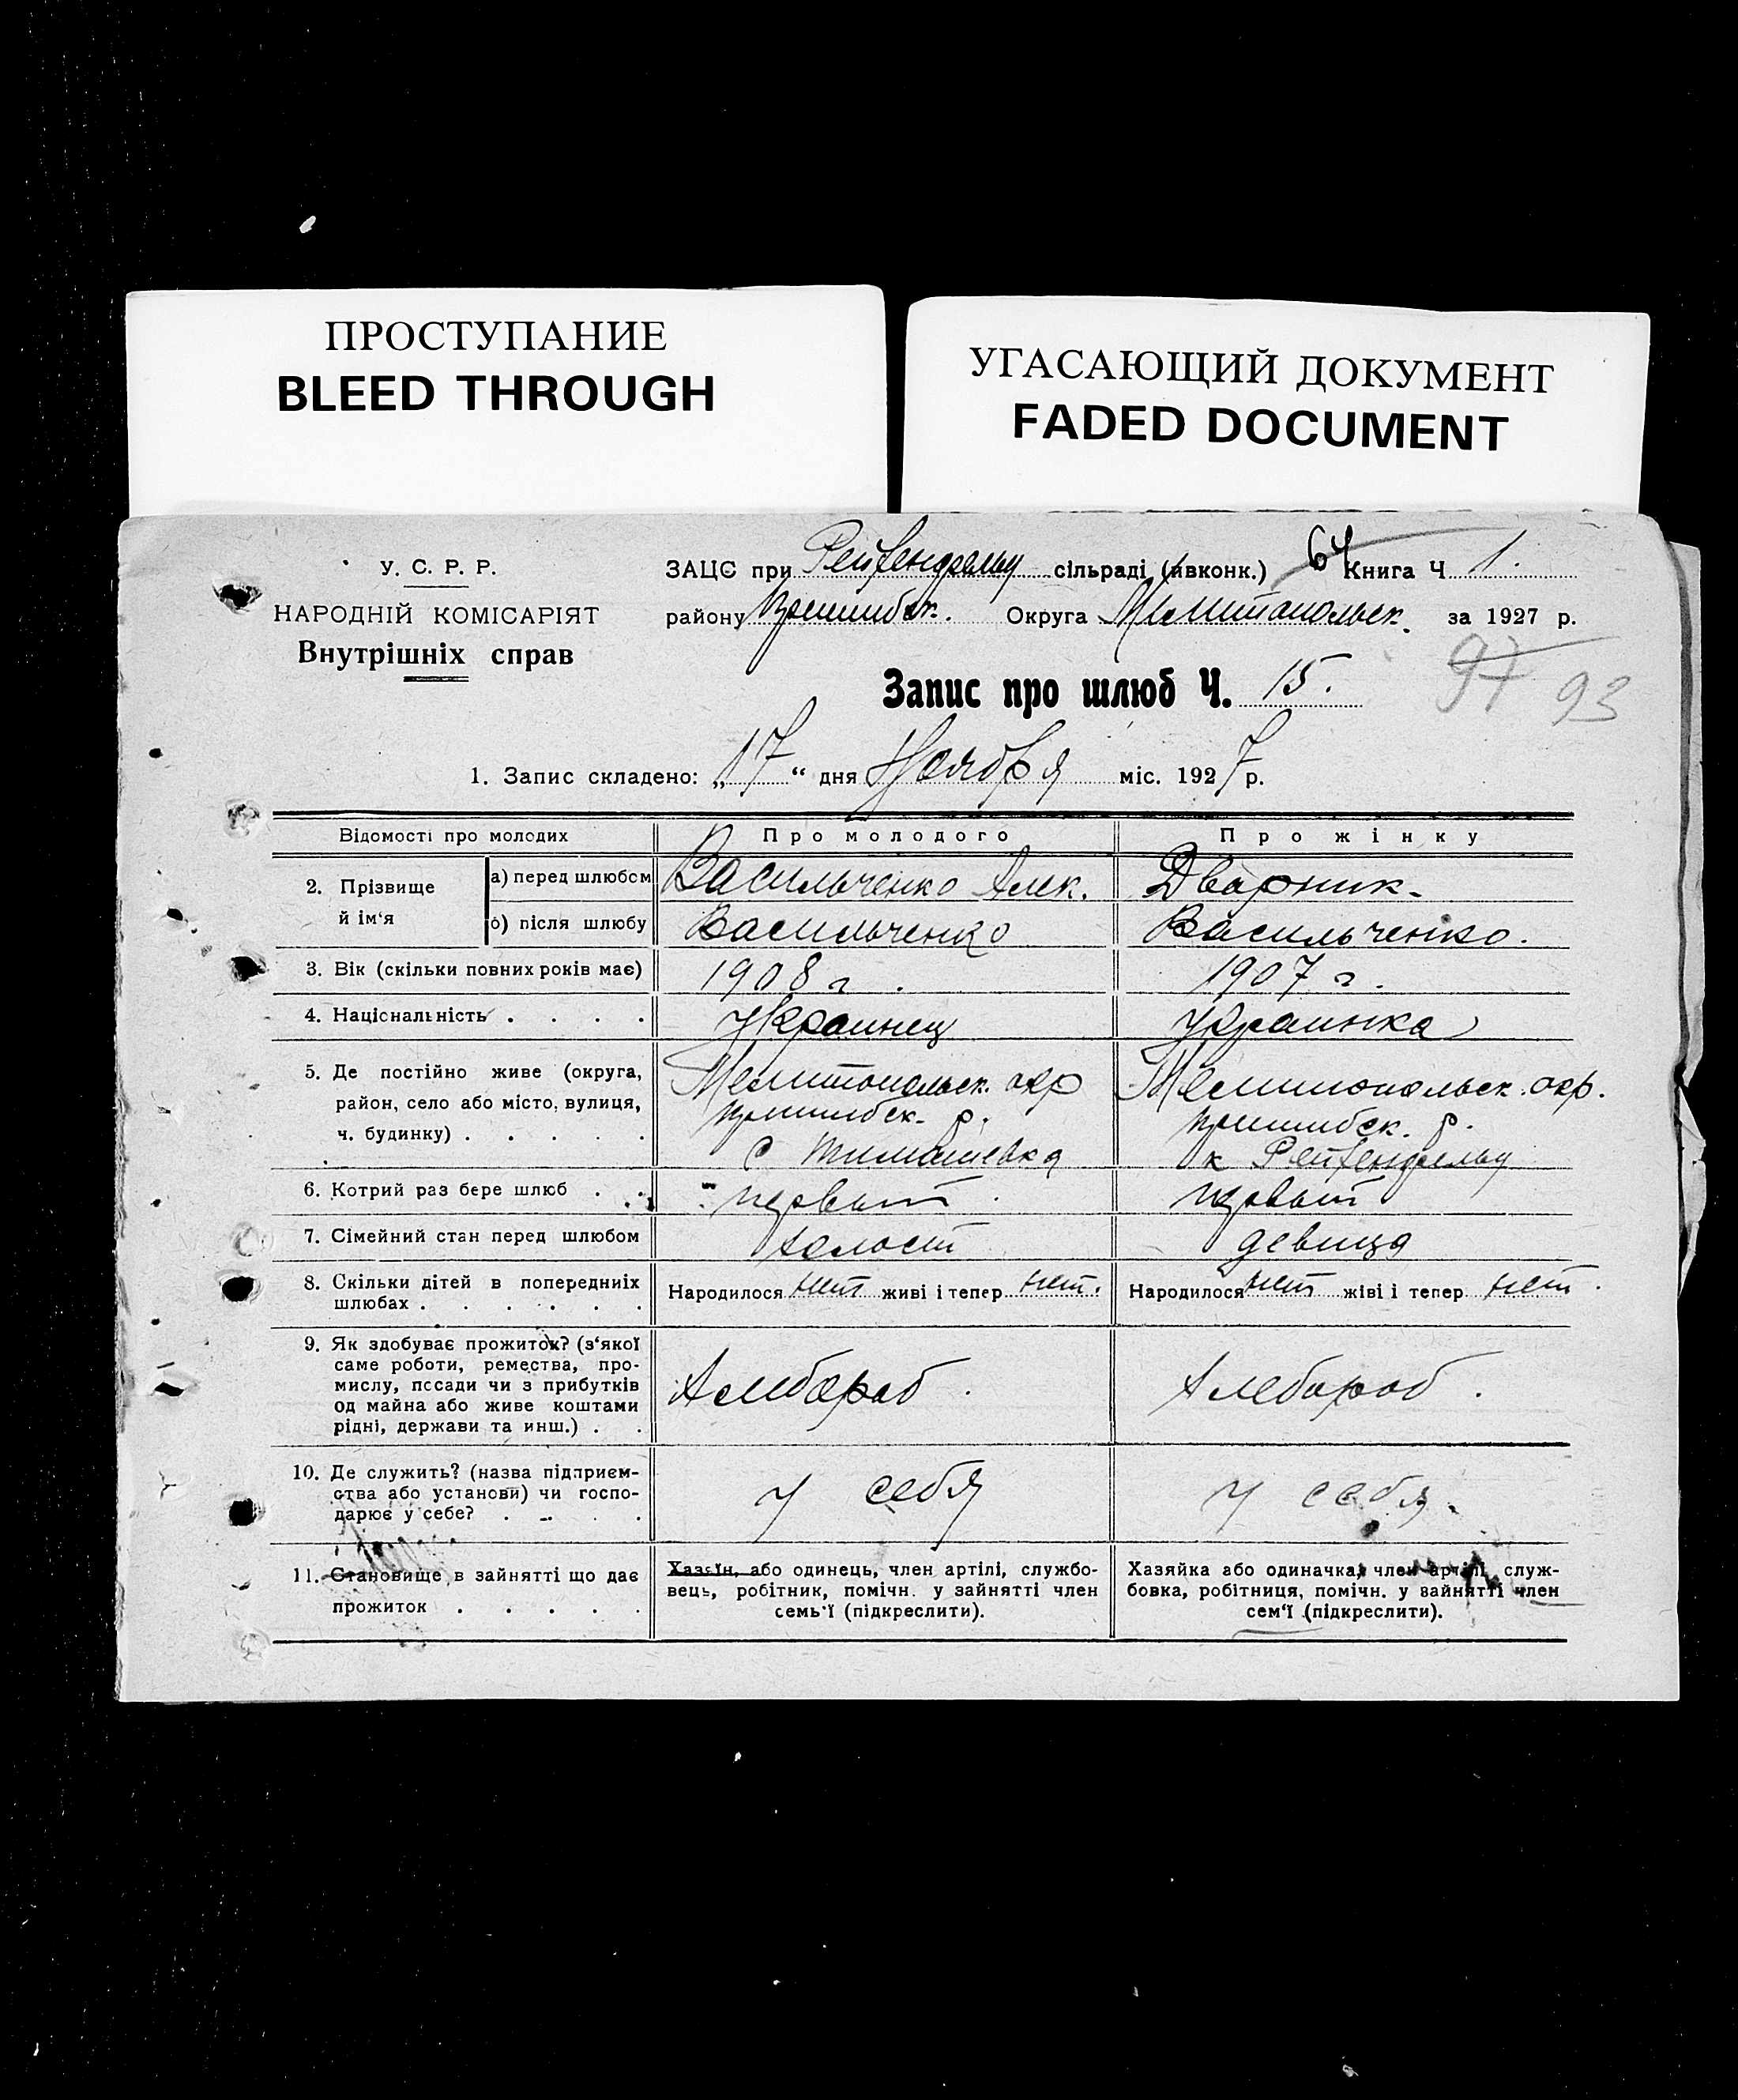 ПРОСТУПАНИЕ
BLEED THROUGH
УГАСАЮЩИЙ ДОКУМЕНТ
FADED DOCUMENT
У. С. Р. Р.
НАРОДНІЙ КОМІСАРІЯТ
Внутрішніх справ
ЗАЦС при Рейхенфельд сільраді (авконк.) 64 Книга Ч 1.
району Пришибск. Округа Мелитопольск. за 1927 р.
97 93
Запис про шлюб Ч. 15.
1. Запис складено: „17“ дня Ноября міс. 1927 р.
Відомості про молодих Про молодого Про жінку
2. Прізвище й ім‘я
а) перед шлюбом Васильченко Алек. Дворник-
б) після шлюбу Васильченко Васильченко.
3. Вік (скільки повних років має) 1908 г. 1907 г.
4. Національність . . . . Украинец Украинка
5. Де постійно живе (округа, Мелитопольск. окр Мелитопольск. окр.
район, село або місто, вулиця, Пришибск. р. Пришибск. р.
ч. будинку) . . . . . с Тимошевка к Рейхенфельд
6. Котрий раз бере шлюб . . первый первый
7. Сімейний стан перед шлюбом холост девица
8. Скільки дітей в попередниіх Народилося нет живі і тепер нет. Народилося нет жіві і тепер нет.
шлюбах . . . . . .
9. Як здобуває прожиток? (з‘якої
саме роботи, ремества, про-
мислу, посади чи з прибутків Хлебороб. Хлебороб.
од майна або живе коштами
рідні, держави та инш.) . .
10. Де служить? (назва підприєм-
ства або установи) чи госпо- у себя у себя.
дарює у себе? . . . .
11. Становище в зайнятті що дає Хазяїн, або одинець, член артілі, службо- Хазяйка або одиначка, член артілі, служ-
прожиток . . . . . вець, робітник, помічн. у зайнятті член бовка, робітниця, помічн. у зайнятті член
семь‘ї (підкреслити). сем‘ї (підкреслити).